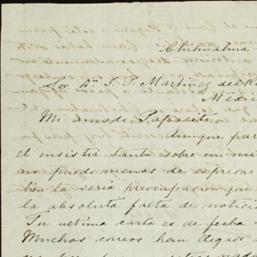 Chihuahua
Sor Dn J. P. Martinez del R
Mexic
Mi amado Papacito
Aunque par
el insistir tanto sobre mi
no puedo menos de espresar
bien la seria preocupacion que
la absoluta falta de notici
Tu ultima carta es de fecha
Muchos correos han llegado d